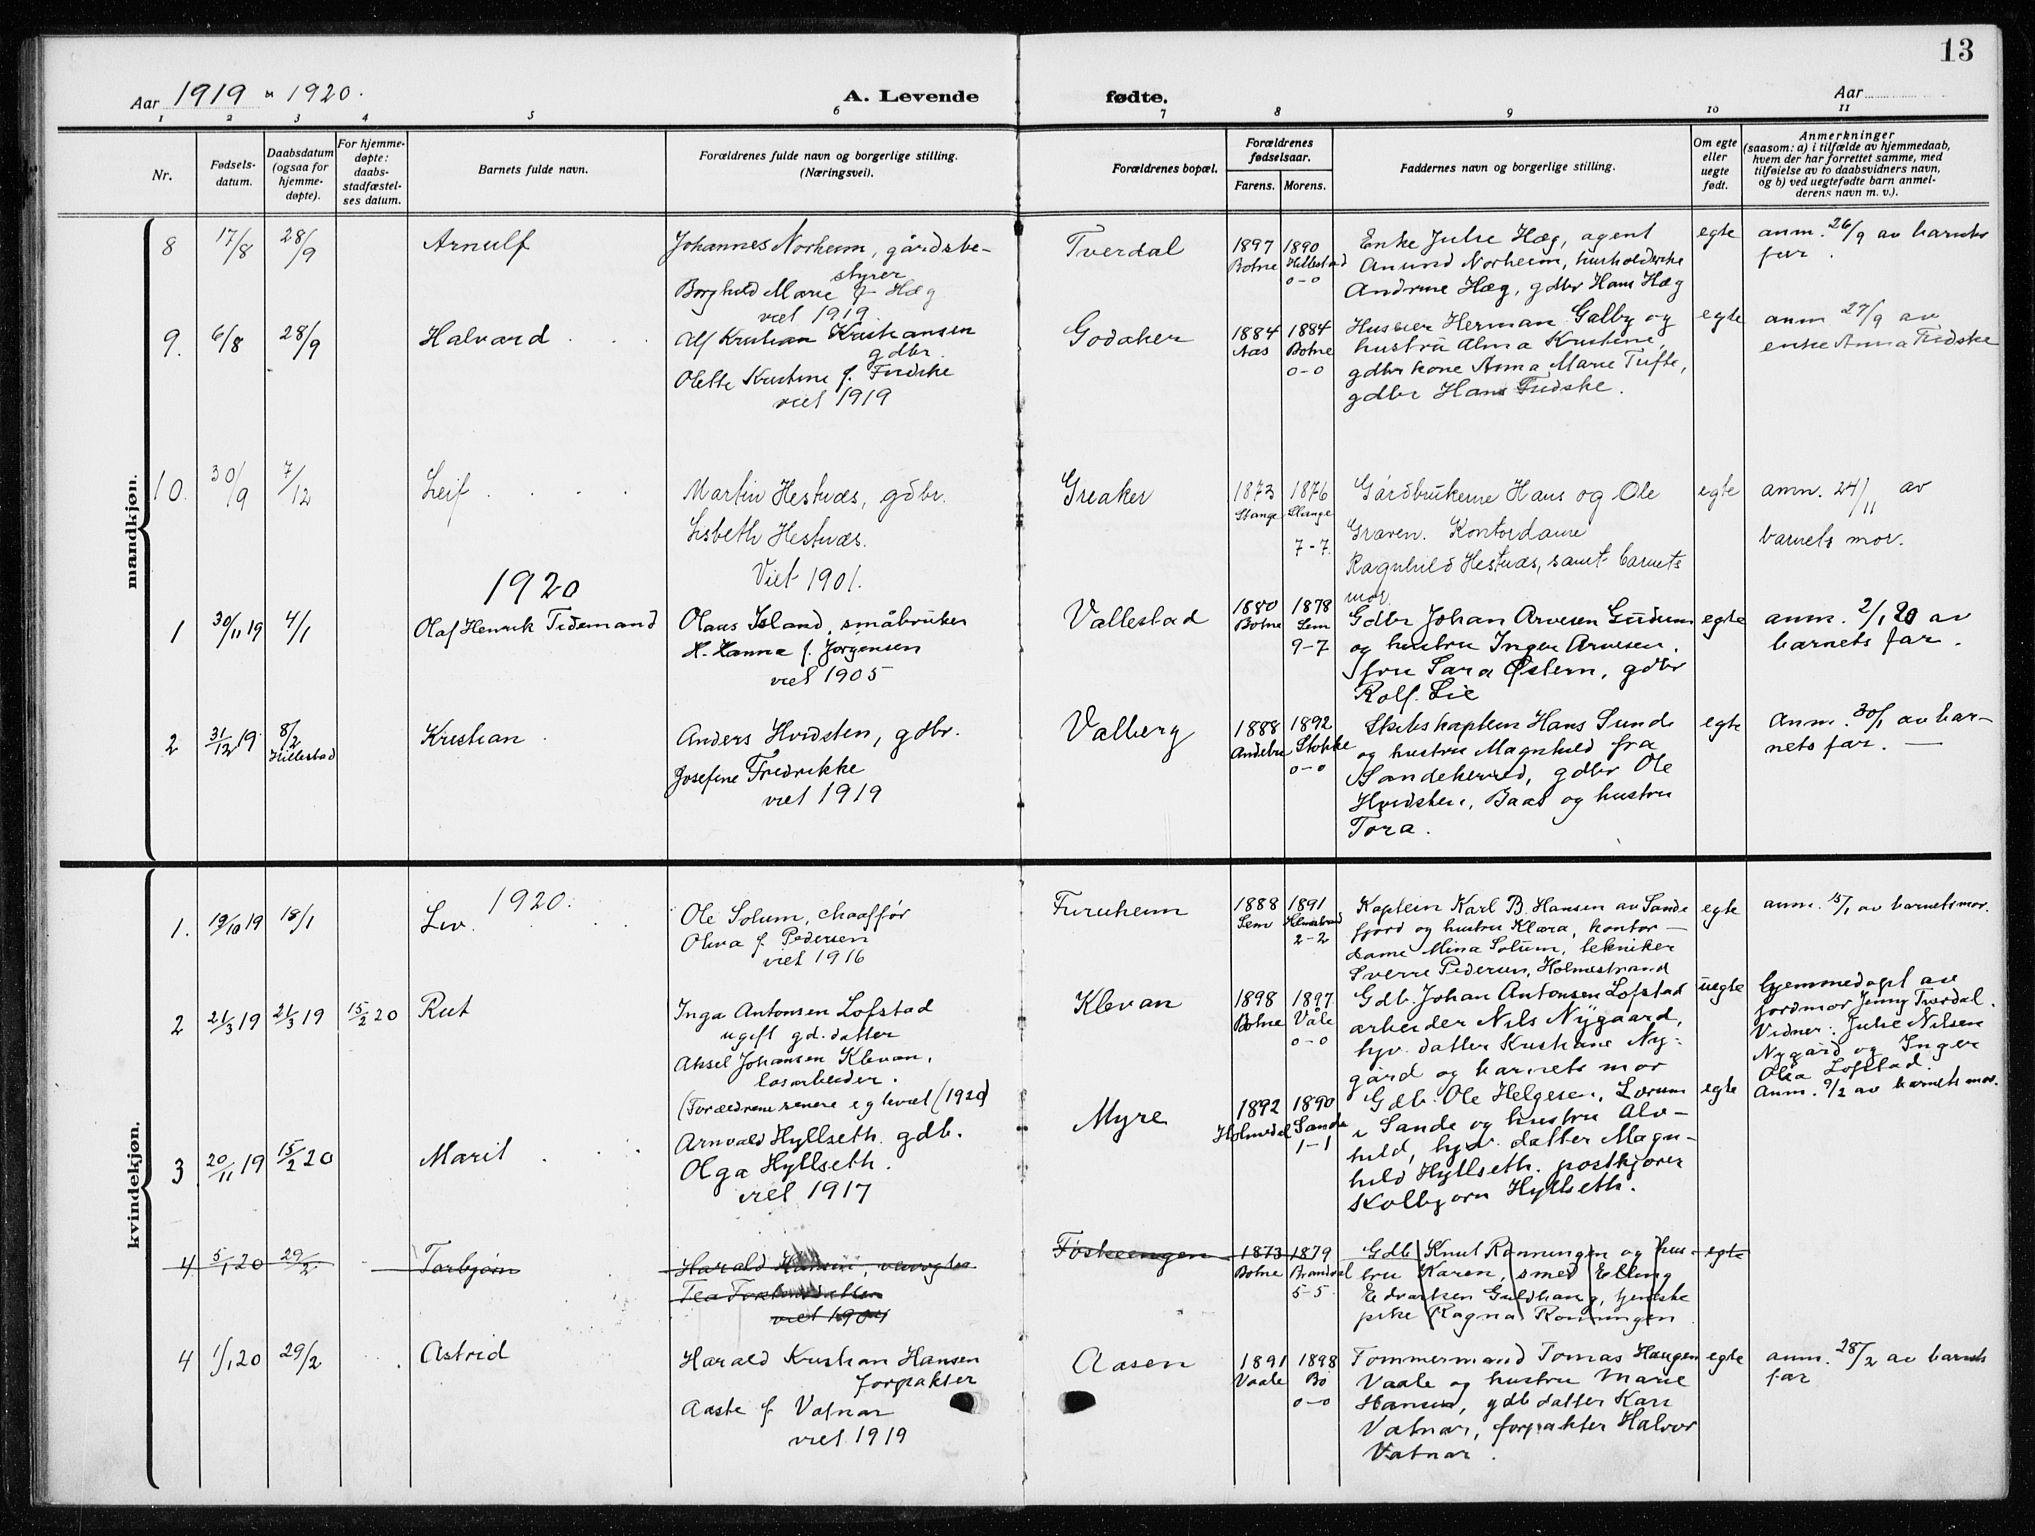 13
Aar 1919 " 1920.
A. Levende fødte.
Aar
1 2 3 4 5 6 7 8 9 10 11
Nr.
Fødsels-
datum.
Daabsdatum
(ogsaa for
hjemme-
døpte).
For hjemme-
døpte:
daabs-
stadfæstel-
ses datum.
Barnets fulde navn.
Forældrenes fulde navn og borgerlige stilling.
(Næringsvei).
Forældrenes bopæl.
Forældrenes
fødselsaar.
Farens. Morens.
Faddernes navn og borgerlige stilling.
Om egte
eller
uegte
født.
Anmerkninger
(saasom: a) i tilfælde av hjemmedaab,
hvem der har forrettet samme, med
tilføielse av to daabsvidners navn,
og b) ved uegtefødte barn anmel-
derens navn m. v.).
mandkjøn.
8 17/8 28/9 Arnulf
Johannes Norheim, gårdsbe-
styrer
Borghild Marie f Hæg
viet 1919.
Tverdal
1897 1890
Botne Hillestad
0-0
Enke Julie Hæg, agent
Anund Norheim, husholderske
Andrine Hæg, gdbr Hans Hæg
egte
anm. 26/9 av barnets
far.
9. 6/8 28/9 Halvard
Alf Kristian Kristiansen
gdbr.
Olette Kristine f. Fredske
viet 1919
Godaker
1884 1884
Aas Botne
0-0
Huseier Herman Galby og
hustru Alma Kristine,
gdbr kone Anna Marie Tufte,
gdbr Hans Fredske.
egte
anm 27/9 av
enke Anna Fredske
10. 30/9 7/12 Leif
Martin Hestnæs, gdbr.
Lisbeth Hestnæs.
Viet 1901.
Greaker
1873 1876
Stange Stange
7-7.
Gårdbrukerne Hans og Ole
Graven. Kontordame
Ragnhild Hestnæs, samt barnets
mor.
egte
anm. 24/11 av
barnets mor.
1920
1 30/11 19 4/1 Olaf Henrik Tidemand
Olaus Island, småbruker
H. Hanna f. Jørgensen
viet 1905
Vallestad
1880 1878
Botne Sem
9-7
Gdbr Johan Arvesen Gudum
og hustru Inger Arvesen,
fru Sara Østern, gdbr
Rolf Lie
egte
anm. 2/1 20 av
barnets far.
2 31/12 19 8/2 Hillestad Kristian
Anders Hvidsten, gdbr.
Josefine Fredrikke
viet 1919
Valberg
1888 1892
Andebu Stokke
0-0
Skibskaptein Hans Sunde
og hustru Magnhild fra
Sandeherred, gdbr Ole
Hvidsten, Baas og hustru
Tora.
egte
Anm. 30/1 av bar-
nets far.
kvindekjøn.
1920.
1. 19/10 19 18/1 Liv
Ole Solum, chaaffør
Oliva f Pedersen
viet 1916
Furuheim
1888 1891
Sem Holmestrand
2-2
Kaptein Karl B. Hansen av Sande
fjord og hustru Klara, kontor-
dame Mina Solum, tekniker
Sverre Pedersen, Holmestrand
egte
anm. 15/1 av barnets mor.
2 21/3 19 21/3 19 15/2 20 Rut
Inga Antonsen Lofstad
ugift gd. datter
Aksel Johansen Klevan,
løsarbeider.
(Forældrene senere egteviet (1920)
Klevan
1898 1897
Botne Våle
0-0
Gdb. Johan Antonsen Lofstad
arbeider Nils Nygaard,
hjv. datter Kristiane Ny-
gård og barnets mor
uegte
hjemmedøpt av
jordmor Jenny Tverdal.
Vidner: Julie Nilsen
Nygård og Inger
Olea Lofstad.
3 20/11 19 15/2 20 Marit
Arnvald Hyllseth. gdb.
Olga Hyllseth.
viet 1917
Myre
1892 1890
Holmedal Sande
1-1
Gdb. Ole Helgesen, Lørum
i Sande og hustru Alv-
hild, hjv. datter Magn-
hild Hyllseth. postkjører
Kolbjørn Hyllseth.
egte
Anm. 9/2 av barnets mor.
4 5/1 20 29/2 Torbjørn
Harald Hansen,
Tea Torstensdatter
viet 1904
Foskeengen
1873 1879
Botne Brandval
5-5.
Gdb Knut Rønningen og hus-
tru Karen, smed Elling
Edvartsen Guldhaug, tjeneste
pike Ragna Rønningen
egte
4 1/1 20 29/2 Astrid
Harald Kristian Hansen
forpakter
Aaste f Vatnar
viet 1919
Aasen
1891 1898
Vaale Bø
0-0
Tømmermand Tomas Haugen
Vaale og hustru Marie
Hansen, gdb datter Kari
Vatnar, forpakter Halvor
Vatnar.
egte
anm. 28/2 av barnets
far